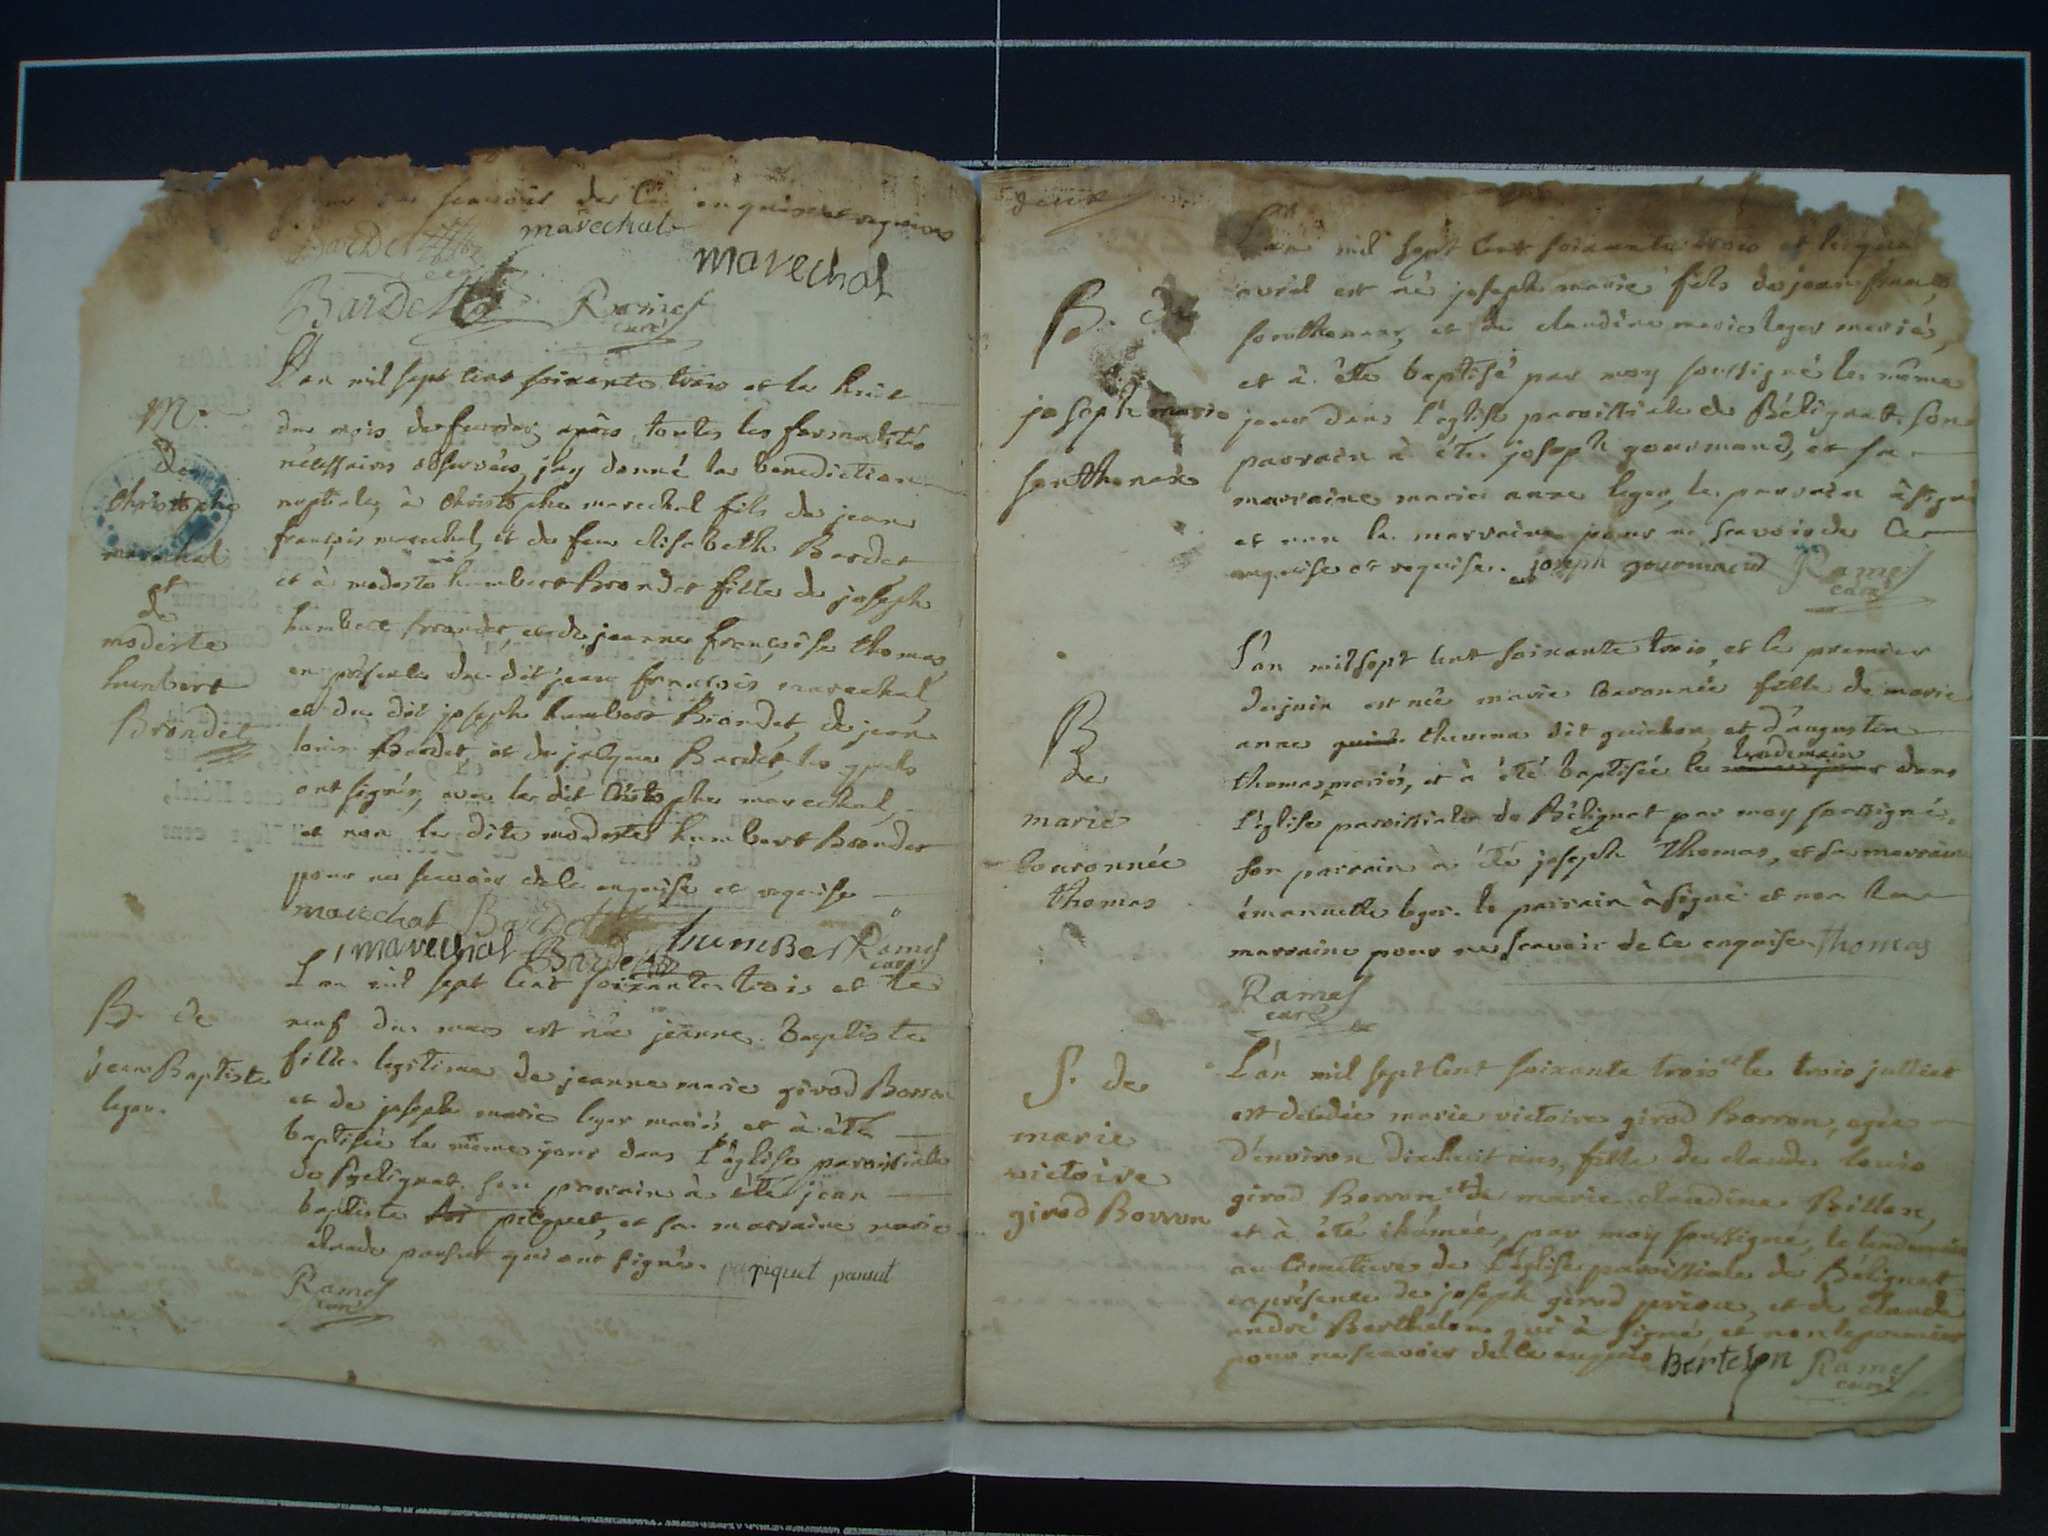 pour ne scavoir de ce enquis et requis
marechal
Bardet
marechal
Bardet
Ramel
curé
L'an mil sept cent soixante trois et le huit
du mois de fevrier, après toutes les formalités
nécessaires observées, j'ay donné la benediction
nuptiale, à christophe marechal fils de jean
françois marechal, et de feue elisabeth Bardet
et à modeste humbert Brondet fille de joseph
humbert brondet, et de jeanne françoise thomas,
en présence du dit jean françois marechal,
et du dit joseph humbert Brondet, de jean
louis Bardet, et de jacque Bardet, les quels
ont signés, avec le dit christophe marechal,
et non la dite modeste humbert Brondet
pour ne scavoir de ce enquise et requise
marechal Bardet
marechal Bardet humBert Ramel
curé
M.
De
christophe
marechal
et
modeste
humbert
Brondet
L'an mil sept cent soixante trois et le
neuf du mars est née jeanne Baptiste
fille legitime de jeanne marie girod Borron
et de joseph marie leger mariés, et à été
baptisée le même jour dans l'église paroissiale
de Belignat. son parrain à été jean
baptiste picquet, et sa marraine marie
claude pansut qui ont signés. piquet pansut
Ramel
curé
B. de
jean Baptiste
leger.
deux
L'an mil sept cent soixante trois et le
avril est né joseph marie fils de jean françois
sonthonnax, et de claudine marie leger mariés,
et à été baptisé par moy soussigné le même
jour dans l'église paroissiale de Bélignat. son
parrain à été joseph gourmand, et sa
marraine marie anne leger, le parrain à signé
et non la marraine pour ne scavoir de ce
enquise et requise. joseph gourmand Ramel
curé
B. de
joseph marie
sonthonax
L'an mil sept cent soixante trois, et le premier
de juin est née marie couronnée fille de marie
anne guich thevena dit guichon, et d'augustin
thomas mariés, et à été baptisée le lendemain dans
l'église paroissiale de Bélignat par moy soussigné.
son parrain à été joseph thomas, et sa marraine
émanuelle leger. le parrain à signé et non la
marraine pour ne scavoir de ce enquise. Thomas
Ramel
curé
B
de
marie
couronnée
thomas
L'an mil sept cent soixante trois et le trois julliet
est décédée marie victoire girod Borron, agée
d'environ dixhuit ans, fille de claude louis
girod Borron et de marie claudine Billon,
et à été ihumée, par moy soussigné, le lendemain
au cimetiere de l'église paroissiale de Bélignat
en présence de joseph girod prieu, et de claude
andré Berthelon qui à signé, et non le premier
pour ne scavoir de ce enquis Bertelon Ramel
curé
S. de
marie
victoire
girod Borron